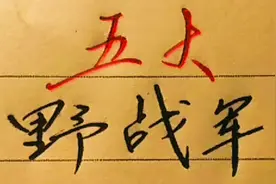 五大
野战军